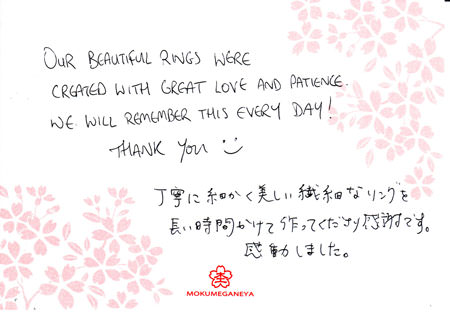 OUR BEAUTIFUL RINGS WERE
CREATED WITH GREAT LOVE AND PATIENCE.
WE WILL REMEMBER THIS EVERY DAY!
THANK YOU
丁寧に細かく美しい繊細なリングを
長い時間かけて作ってくださり感謝です。
感動しました。
MOKUMEGANEYA